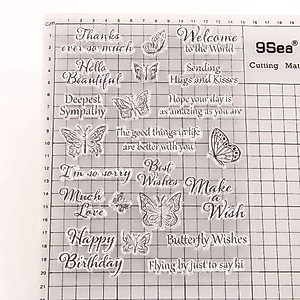 Thanks
ever so much
Welcome
to the World
9Sea
Cutting Mat
Hello
Beautiful
Sending
Hugs and Kisses
Deepest
Sympathy
Hope your day is
as amazing as you are
The good things in life
are better with you
I'm so sorry
Best
Wishes
Much
Love
Make
a
Wish
Happy
Birthday
Butterfly Wishes
Flying by just to say hi